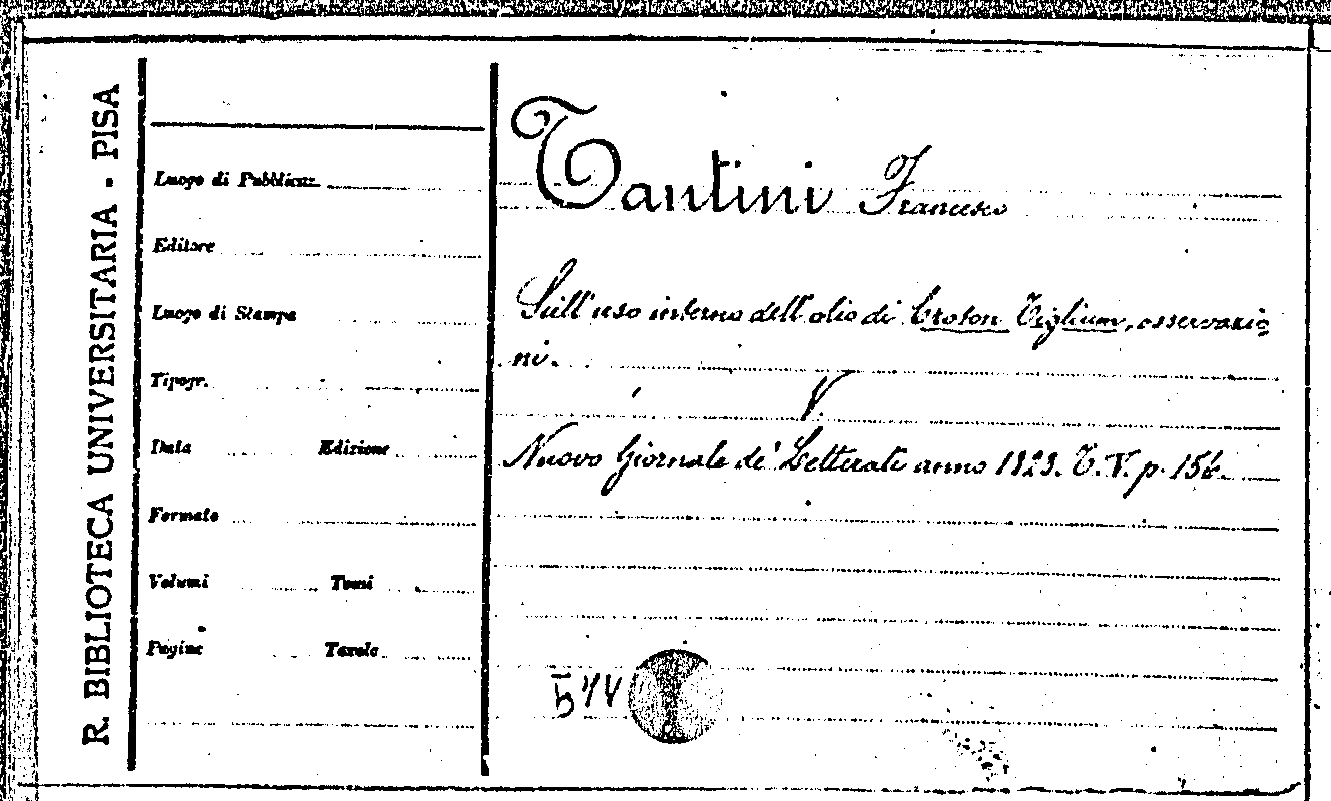 R. BIBLIOTECA UNIVERSITARIA - PISA
Luogo di Pubblicaz.
Editore
Luogo di Stampa
Tipogr.
Data Edizione
Formato
Volumi Tomi
Pagine Tavole
Tantini Francesco
Sull'uso interno dell'olio di Croton Tiglium, osservazio
ni.
V.
Nuovo Giornale de' Letterati anno 1823. T. V. p. 156.